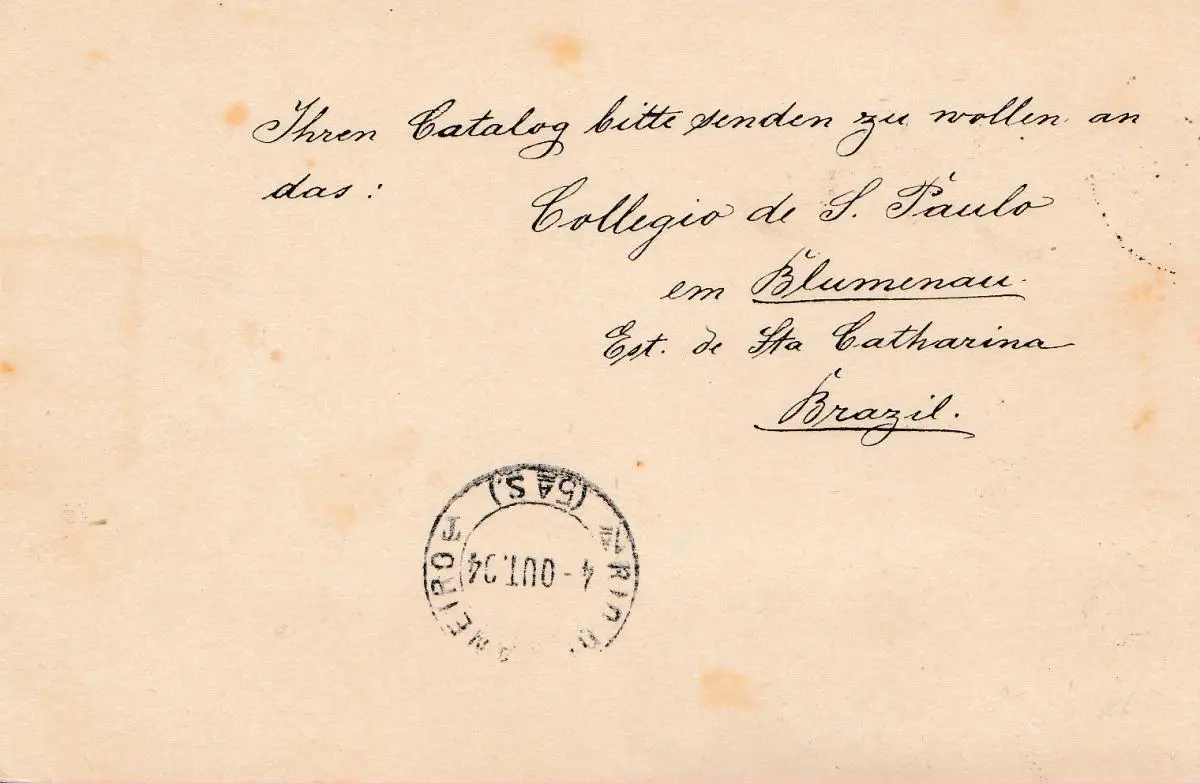 Ihren Catalog bitte senden zu wollen an
das:
Collegio de S. Paulo
em Blumenau.
Est. de Sta Catharina
Brazil.
(5A S.)
4 - OUT. 94
RIO D. ANEIRO